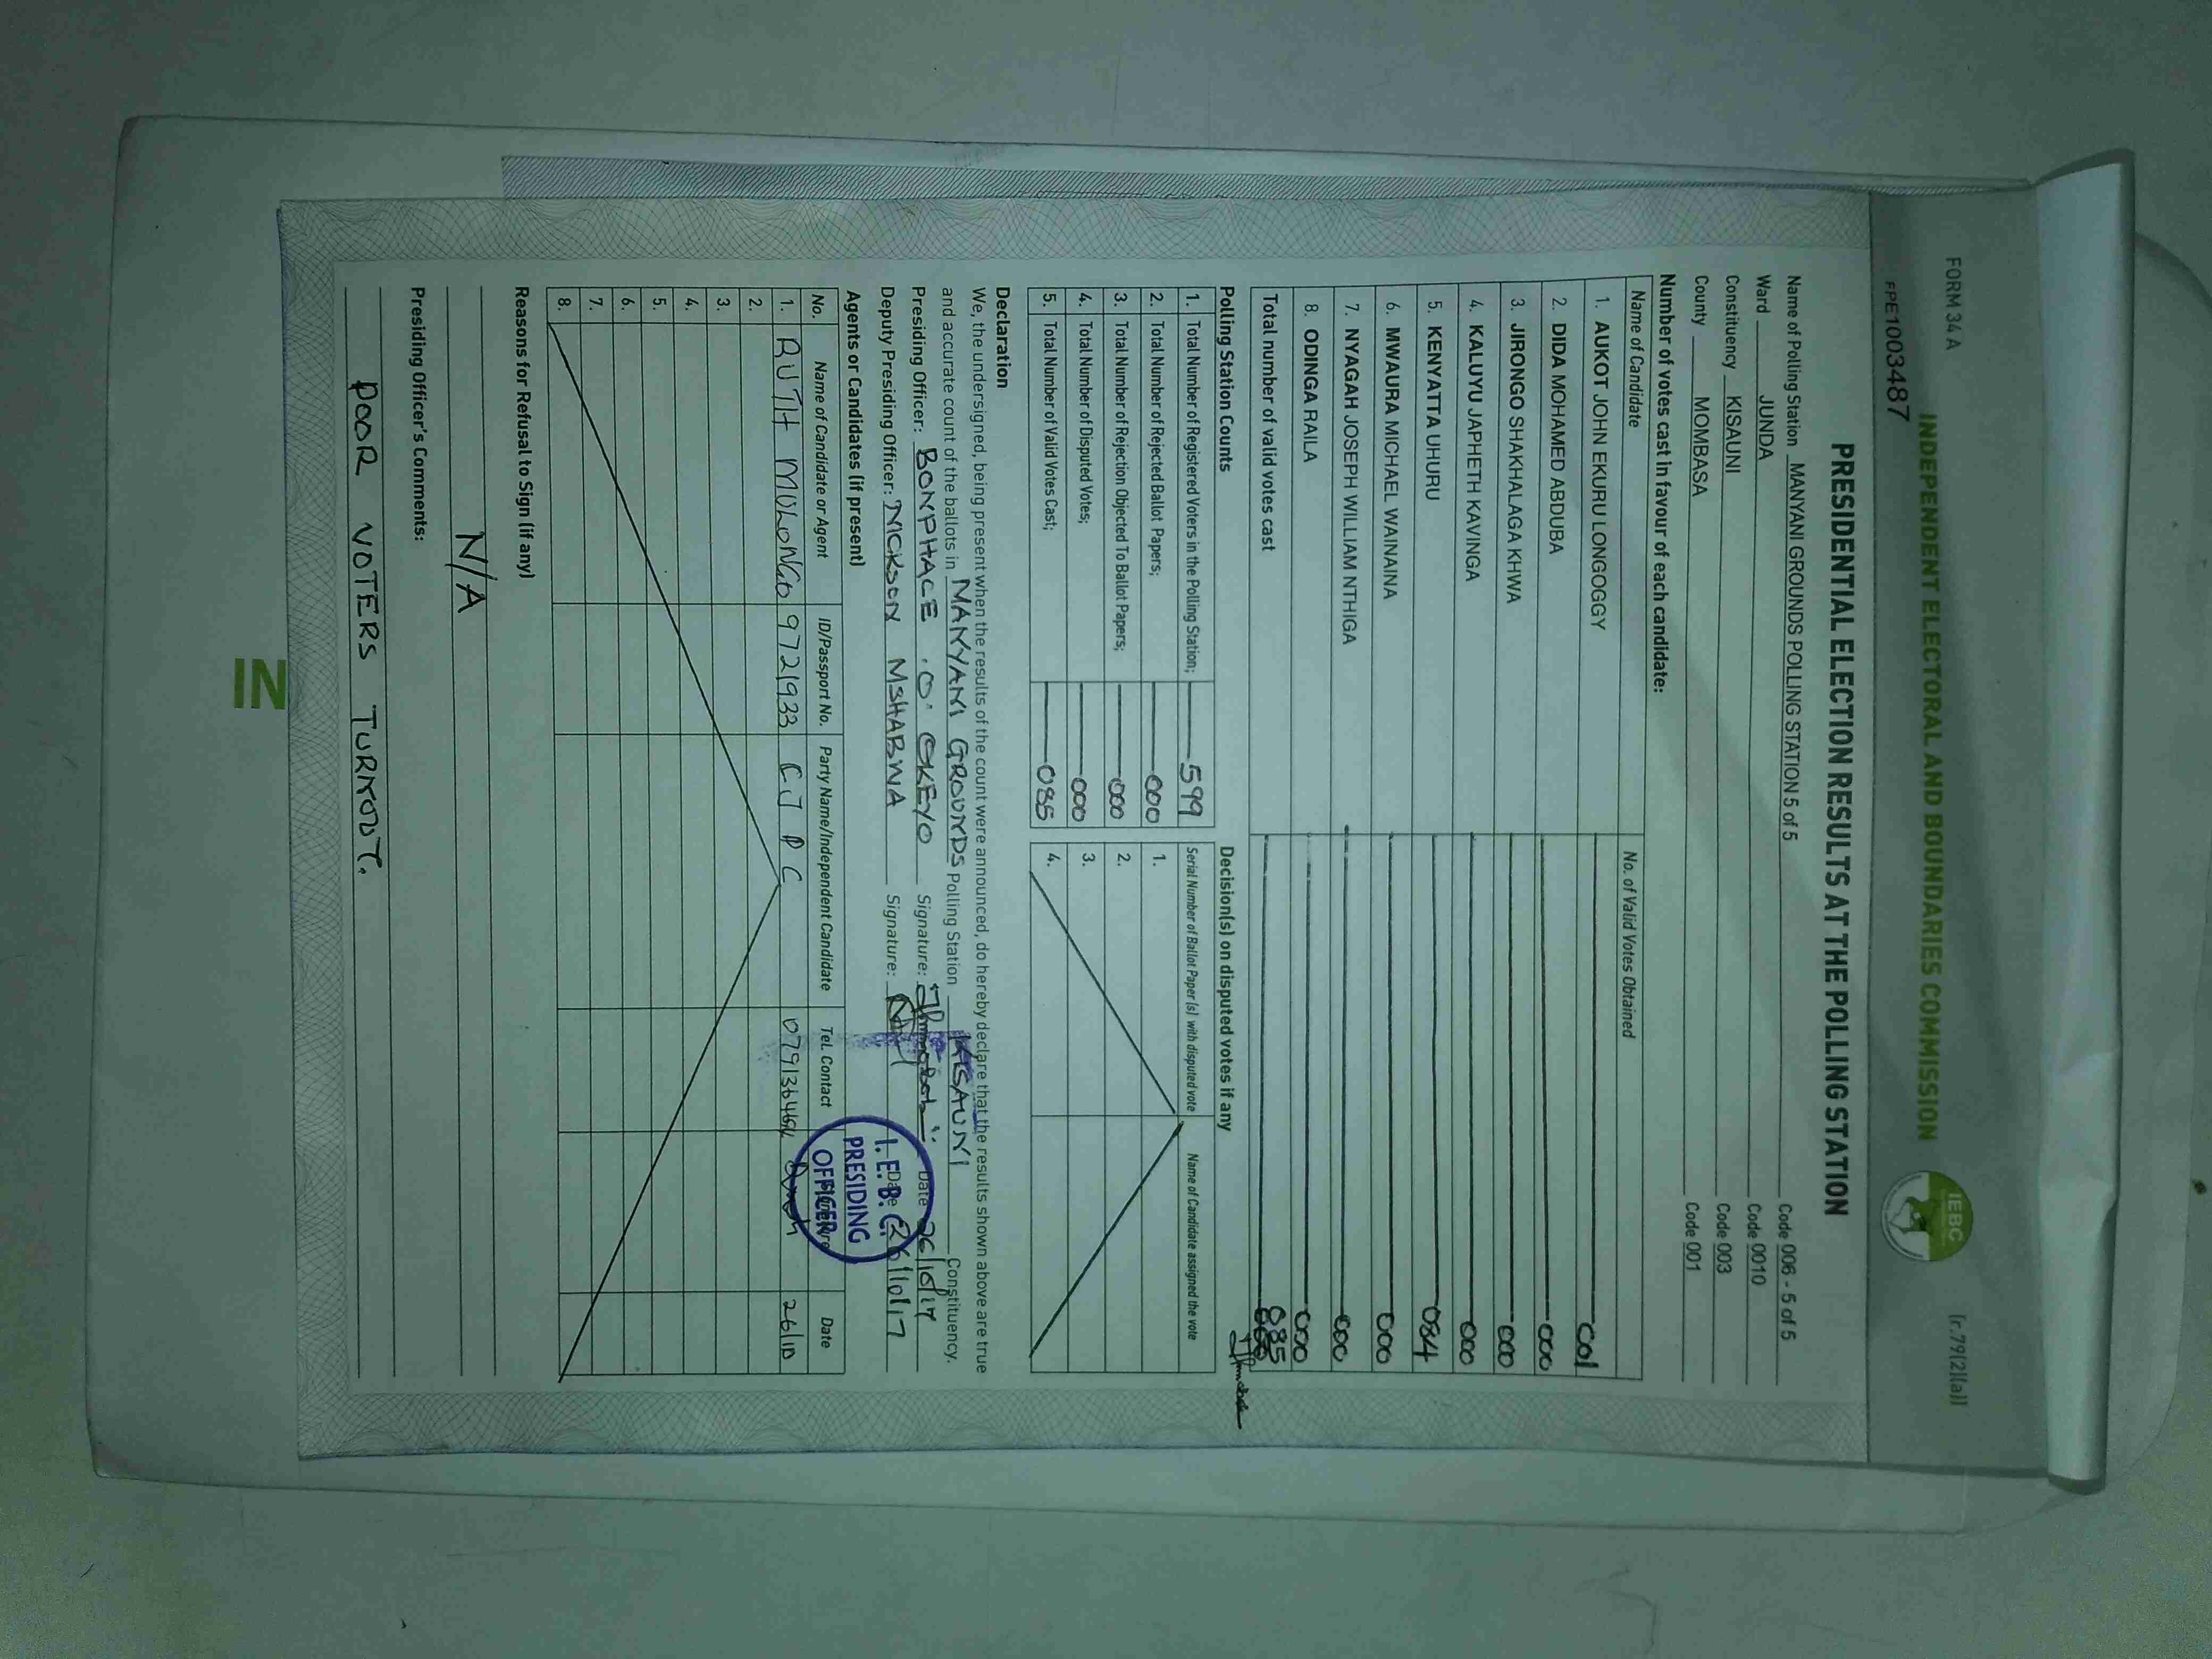 FORM 34 A
[r.79(2)(a)]
INDEPENDENT ELECTORAL AND BOUNDARIES COMMISSION
IEBC
PPE1003487
PRESIDENTIAL ELECTION RESULTS AT THE POLLING STATION
Name of Polling Station MANYANI GROUNDS POLLING STATION 5 of 5 Code 006 - 5 of 5
Ward JUNDA Code 0010
Constituency KISAUNI Code 003
County MOMBASA Code 001
Number of votes cast in favour of each candidate:
Name of Candidate No. of Valid Votes Obtained
1. AUKOT JOHN EKURU LONGOGGY 001
2. DIDA MOHAMED ABDUBA 000
3. JIRONGO SHAKHALAGA KHWA 000
4. KALUYU JAPHETH KAVINGA 000
5. KENYATTA UHURU 084
6. MWAURA MICHAEL WAINAINA 000
7. NYAGAH JOSEPH WILLIAM NTHIGA 000
8. ODINGA RAILA 000
Total number of valid votes cast 085
Polling Station Counts
1. Total Number of Registered Voters in the Polling Station; 599
2. Total Number of Rejected Ballot Papers; 000
3. Total Number of Rejection Objected To Ballot Papers; 000
4. Total Number of Disputed Votes; 000
5. Total Number of Valid Votes Cast; 085
Decision(s) on disputed votes if any
Serial Number of Ballot Paper (s) with disputed vote Name of Candidate assigned the vote
1.
2.
3.
4.
Declaration
We, the undersigned, being present when the results of the count were announced, do hereby declare that the results shown above are true
and accurate count of the ballots in MANYANI GROUNDS Polling Station KISAUNI Constituency.
Presiding Officer: BONPHACE .O. OKEYO Signature: Date 26/10/17
Deputy Presiding Officer: NICKSON MSHABWA Signature: Date 26/10/17
I. E. B. C.
PRESIDING
OFFICER
Agents or Candidates (if present)
No. Name of Candidate or Agent ID/Passport No. Party Name/Independent Candidate Tel. Contact Date
1. RUTH MULONGO 9721933 26/10
2.
3.
4.
5.
6.
7.
8.
Reasons for Refusal to Sign (if any)
N/A
Presiding Officer's Comments:
POOR VOTERS TURNOUT.
IN